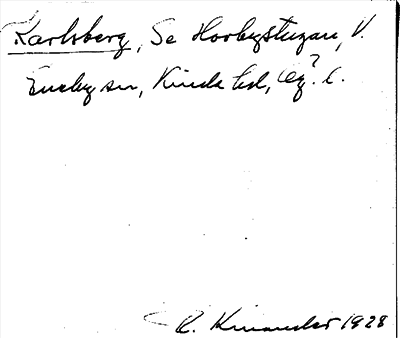 Karlsberg, Se Horbystugan, V.
Eneby sn, Kinda hd, Ög? l.
R. Kinander 1928